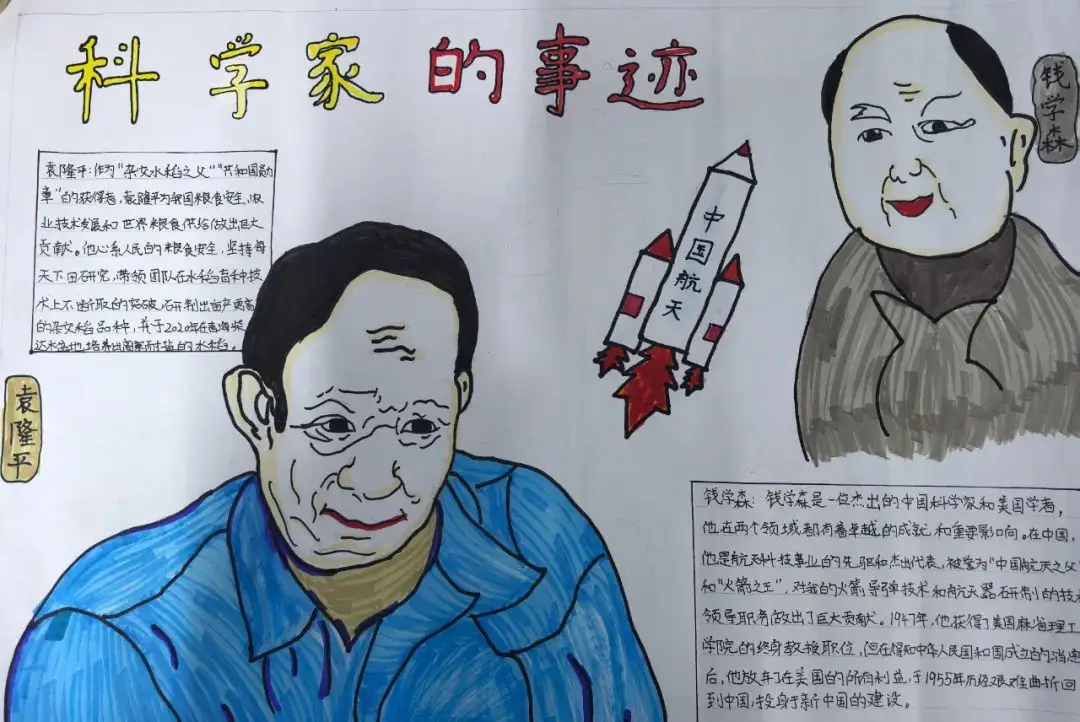 科学家的事迹
钱学森
袁隆平:作为"杂交水稻之父""共和国勋
章"的获得者,袁隆平为我国粮食安全、农
业技术发展和世界粮食供给做出巨大
贡献。他心系人民的粮食安全,坚持每
天下田研究,带领团队在水稻育种技
术上不断取的突破,研制出亩产更高
的杂交水稻品种,并于2020年在青海柴
达木盆地培养出高寒耐盐的水稻。
中国航天
袁隆平
钱学森:钱学森是一位杰出的中国科学家和美国学者,
他在两个领域都有着卓越的成就和重要影响。在中国,
他是航天科技事业的先驱和杰出代表,被誉为"中国航天之父"
和"火箭之王",对的火箭、导弹技术和航天器研制的技
领导职务做出了巨大贡献。1947年,他获得了美国麻省理工
学院的终身教授职位,但在得知中华人民国和国成立的消息
后,他放弃了在美国的所有利益,于1955年历经艰难曲折回
到中国,投身于新中国的建设。